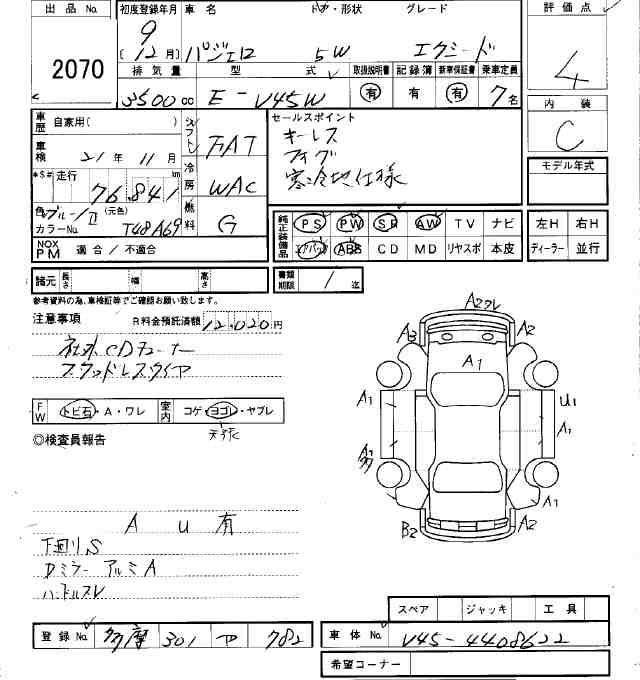 出品 No. 初度登録年月 車名 ドア・形状 グレード 評価点
2070 9 (12月) パジェロ 5W エクシード 4
排気量 型式 取扱説明書 記録簿 新車保証書 乗車定員
3500cc E-V45W 有 有 有 7名
内装
C
車歴 自家用( ) シフト FAT
車検 21年 11月
*$# 走行 76.841 km 冷房 WAC
色 ブルー/II (元色) 燃料 G
カラーNo. T48A69
NOX PM 適合/不適合
セールスポイント
キーレス
フォグ
寒冷地仕様
モデル年式
純正装備品 PS PW SR AW TV ナビ 左H 右H
エアバック ABS CD MD リヤスポ 本皮 ディーラー 並行
諸元 長さ 幅 高さ 書類期限 / 迄
参考資料の為、車検証等でご確認お願い致します。
注意事項 R料金預託済額 12.020円
社外CDチューナー
スタッドレスタイヤ
FW トビ石・A・ワレ 室内 コゲ・ヨゴレ・ヤブレ
天張
◎検査員報告
A U 有
下回り.S
Dミラー アルミA
ハンドルスレ
A2ワレ
A3 A2
A1
A1 U1
A1
A1
B2 A2
スペア ジャッキ 工具
登録No. 多摩 301 ヤ 782 車体No. V45-4408622
希望コーナー